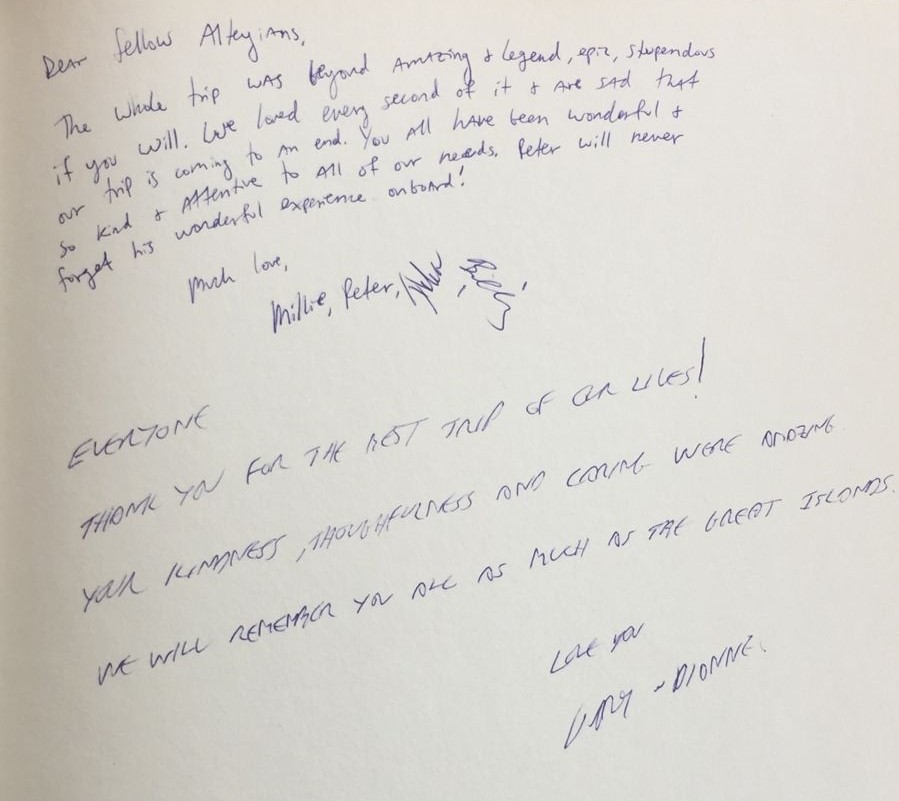 Dear fellow Alteyians,
The whole trip was beyond amazing & legend, epic, stupendous
if you will. We loved every second of it & are sad that
our trip is coming to an end. You all have been wonderful &
so kind & attentive to all of our needs. Peter will never
forget his wonderful experience onboard!
Much love,
Millie, Peter,
EVERYONE
THANK YOU FOR THE BEST TRIP OF OUR LIVES!
YOUR KINDNESS, THOUGHFULNESS AND CARING WERE AMAZING
WE WILL REMEMBER YOU ALL AS MUCH AS THE GREAT ISLANDS.
LOVE YOU
GARY & DIONNE.